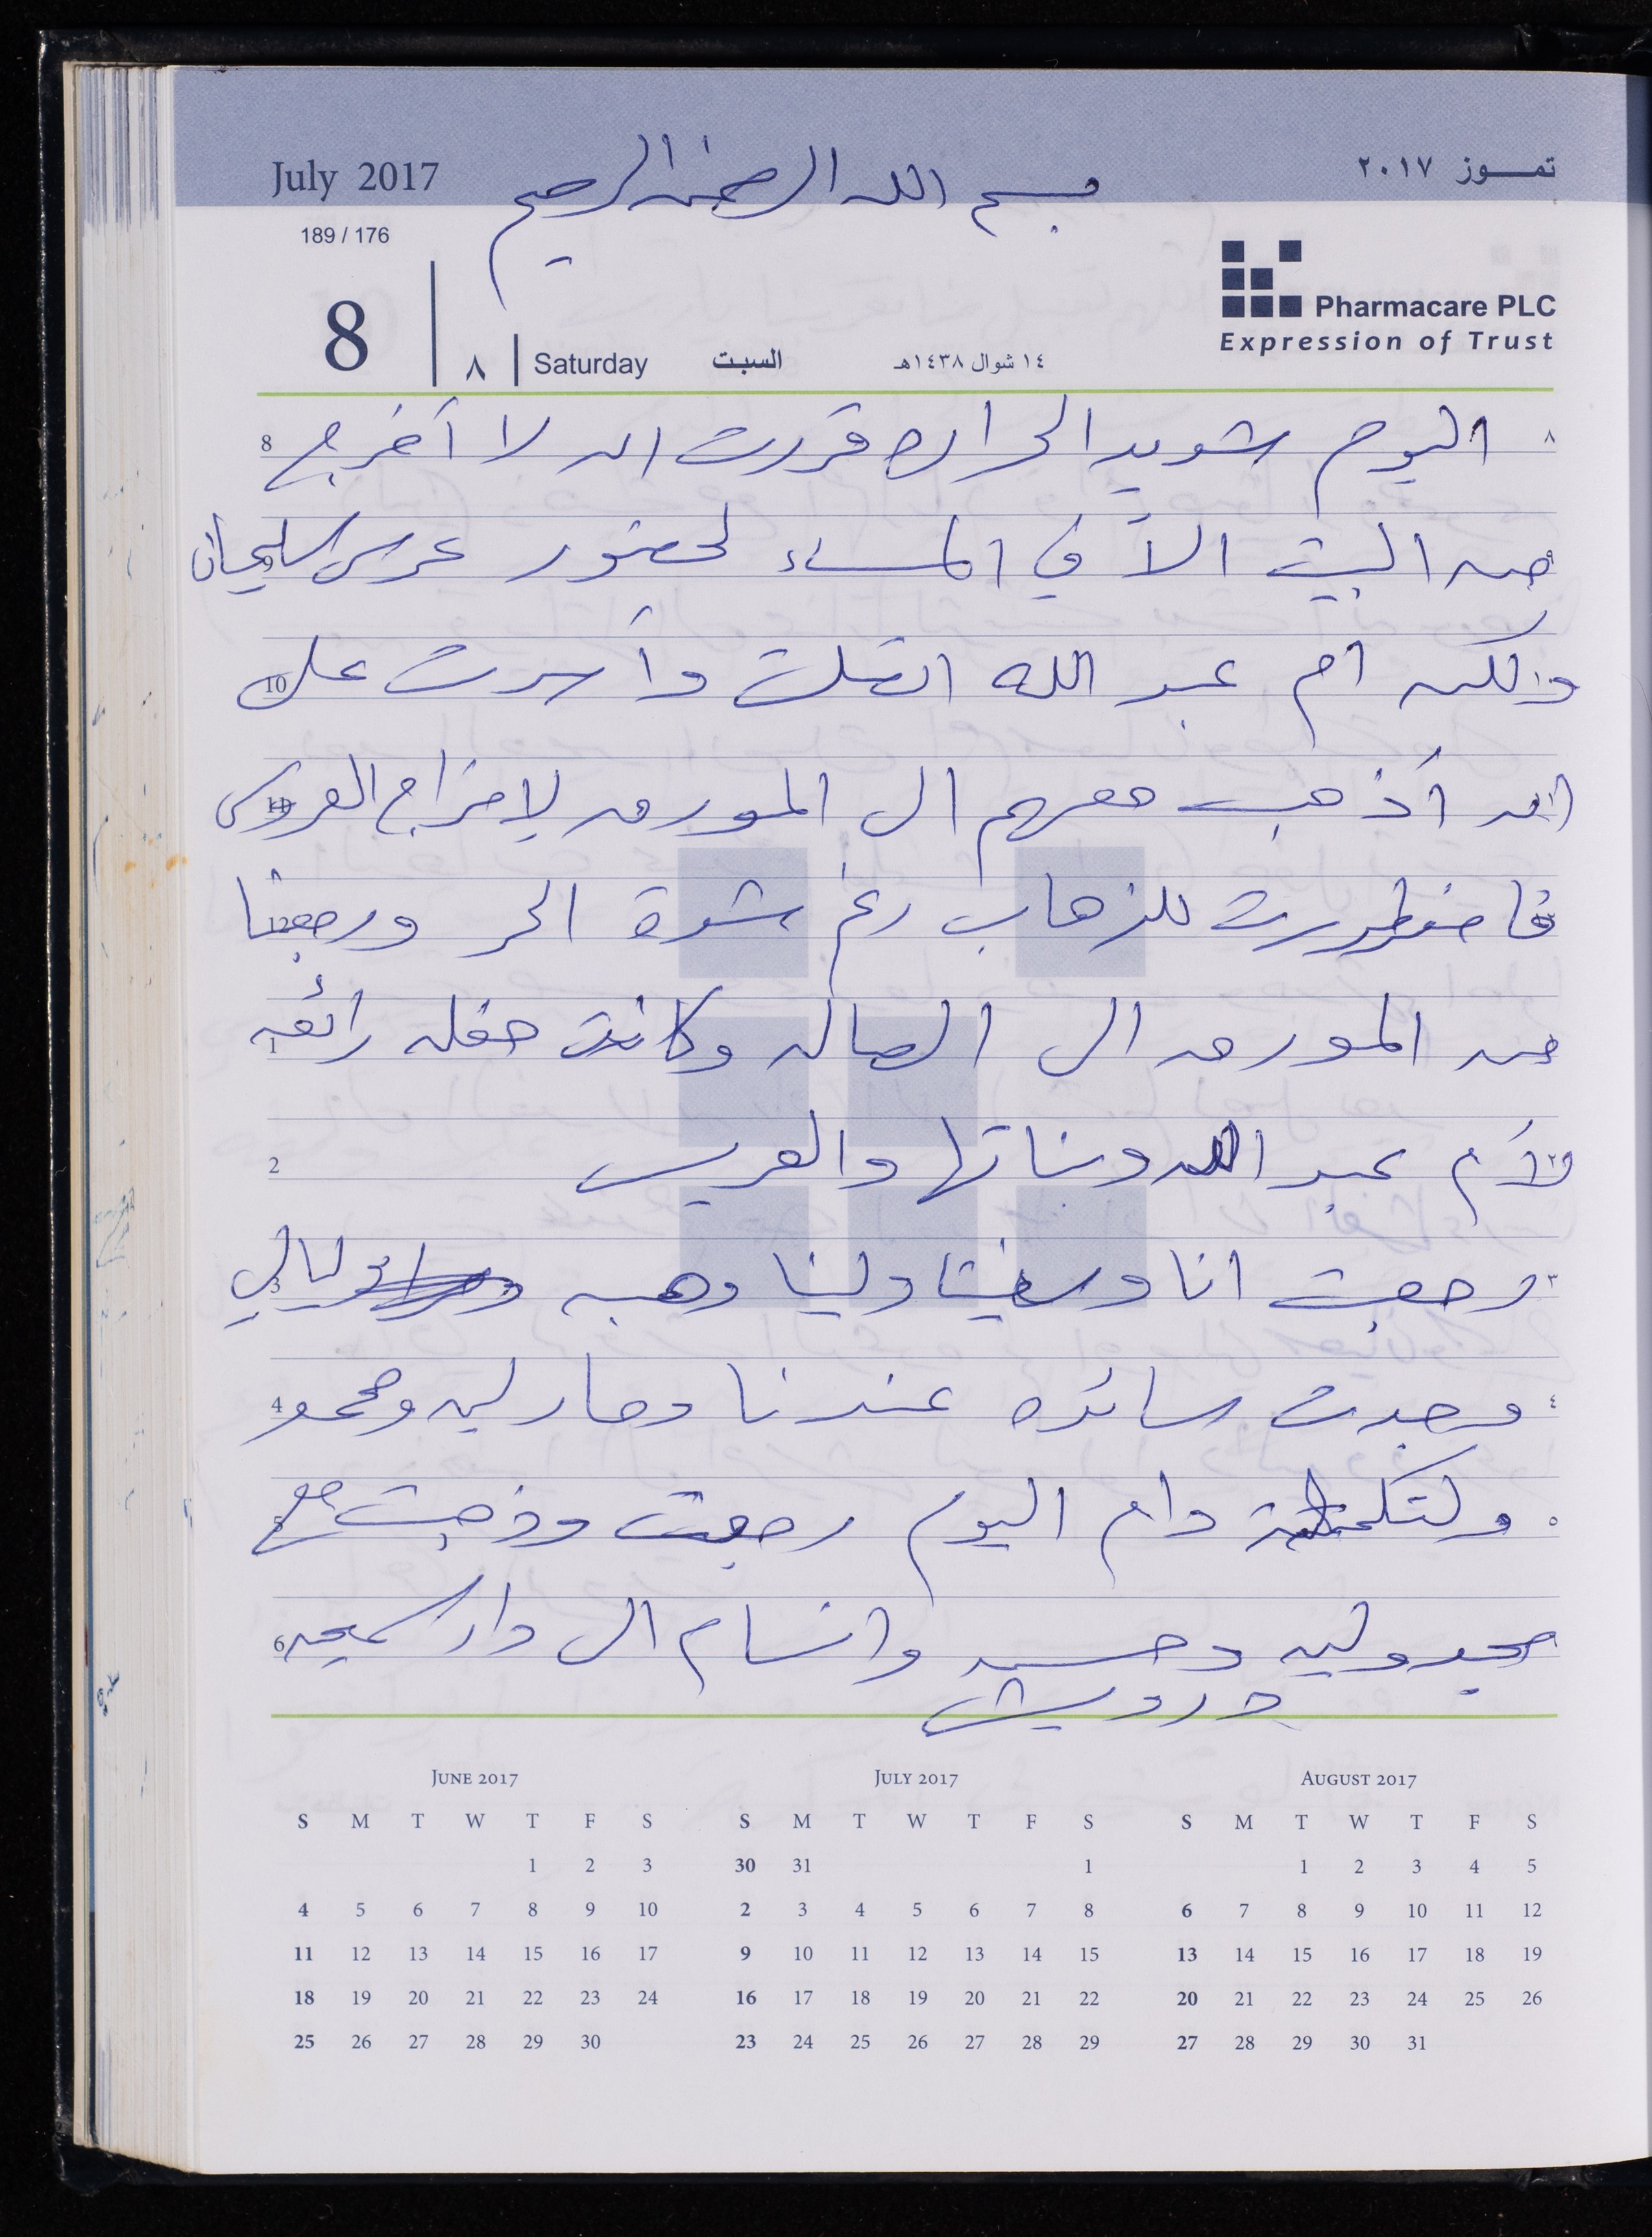 July 2017
بسم الله الرحمن الرحيم
تمـــوز ٢٠١٧
189 / 176
Pharmacare PLC
Expression of Trust
8 ٨ Saturday السبت ١٤ شوال ١٤٣٨هـ
8 اليوم شديد الحراره قررت ان لا أخرج ٨
من البيت الا في المساء لحضور عرس سليمان
10 ولكن ام عبد الله اتصلت وأسرت على
ان أذهب معهم الى المورد لاخراج العروس
12 فاضطررت للذهاب رغم شدة الحر ورجعنا
1 من المورد الى الصاله وكانت حفله رائعه
2 لأم عبد الله وبناتها والعريس
3 رجعت انا و ولينا وهبه وليالي ٣
4 وجدت سائده عندنا ومارلين ومحمد ٤
ولتكملة دام اليوم رجعت وذهبت مع ٥
6 مجد ولين وحسن وابتسام الى دار سميحه
درويش
JUNE 2017 JULY 2017 AUGUST 2017
S M T W T F S S M T W T F S S M T W T F S
1 2 3 30 31 1 1 2 3 4 5
4 5 6 7 8 9 10 2 3 4 5 6 7 8 6 7 8 9 10 11 12
11 12 13 14 15 16 17 9 10 11 12 13 14 15 13 14 15 16 17 18 19
18 19 20 21 22 23 24 16 17 18 19 20 21 22 20 21 22 23 24 25 26
25 26 27 28 29 30 23 24 25 26 27 28 29 27 28 29 30 31